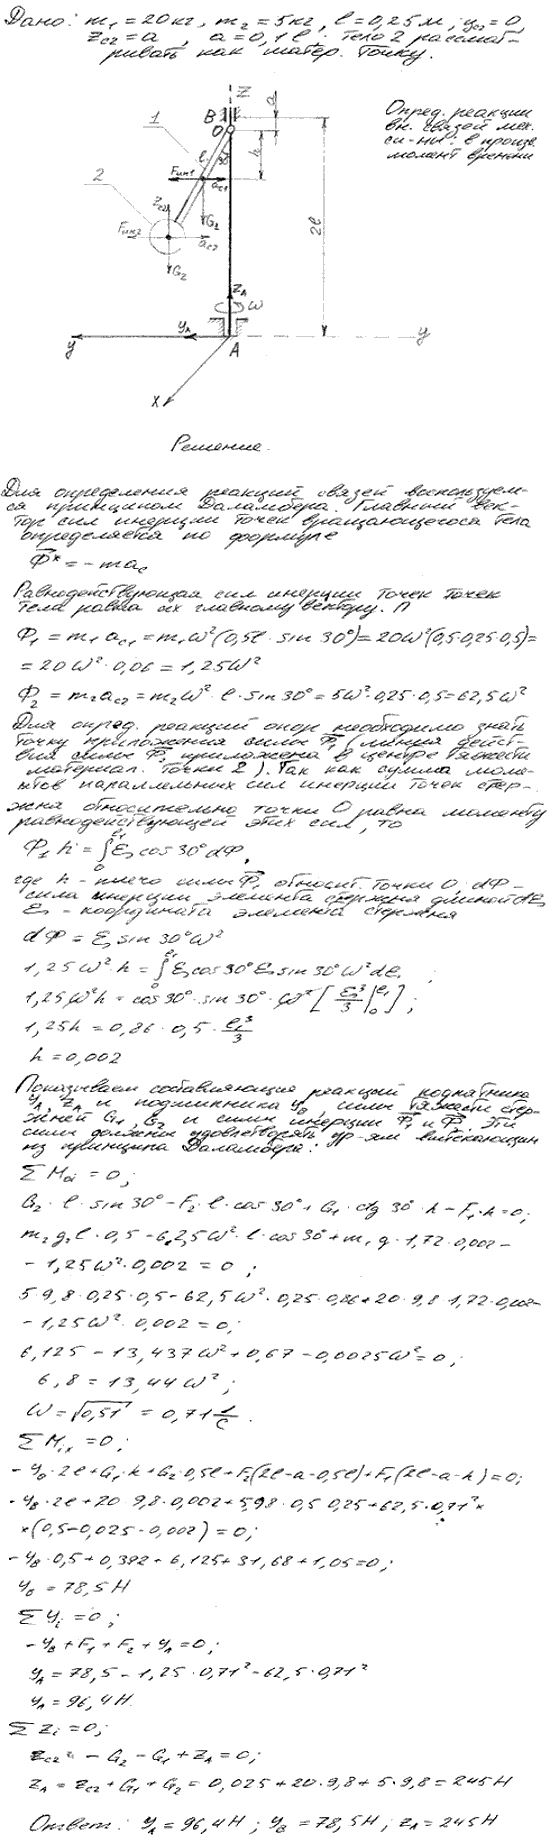 Дано: m₁ = 20 кг, m₂ = 5 кг, l = 0,25 м, y_c2 = 0,
z_c2 = a, a = 0,1 l, тело 2 рассмат-
ривать как матер. точку.
Опред. реакции
вн. связей мех.
си-ны в произв.
момент времени
Z
B
a
O
1
l
30°
h
Fин1
a_c1
2
Z_c2
G₂
2l
Fин2
a_c2
G₂
Z_A
ω
y_A
y
A
y
X
Решение.
Для определения реакций связей воспользуем-
ся принципом Даламбера. Главный век-
тор сил инерции точек вращающегося тела
определяется по формуле
Φ* = - ma_c
Равнодействующая сил инерции точек точек
тела равна их главному вектору. П
Φ₁ = m₁ a_c1 = m₁ω²(0,5l · sin 30°) = 20ω²(0,5·0,25·0,5) =
= 20ω² · 0,06 = 1,25ω²
Φ₂ = m₂a_c2 = m₂ω² · l · sin 30° = 5ω²·0,25·0,5 = 62,5ω²
Для опред. реакций опор необходимо знать
точку приложения силы Φ₁ (линия дейст-
вия силы Φ₂ приложена в центре тяжести
материал. точки 2). Так как сумма моме-
нтов параллельных сил инерции точек стер-
жня относительно точки O равна моменту
равнодействующей этих сил, то
Φ₁ h = ∫₀^l₁ ξ cos 30° dΦ,
где h - плечо силы Φ₁ относит. точки O, dΦ -
сила инерции элемента стержня длиной dξ,
ξ - координата элемента стержня
dΦ = ξ sin 30° ω²
1,25ω² · h = ∫₀^l₁ ξ cos 30° ξ sin 30° ω² dξ ;
1,25ω²h = cos 30° · sin 30° · ω² [ξ³/3 |₀^l₁] ;
1,25h = 0,86 · 0,5 · l₁³/3
h = 0,002
Показываем составляющие реакций подпятника
y_A, Z_A и подшипника y_B, силы тяжести стер-
жней G₁, G₂ и силы инерции Φ₁ и Φ₂. Эти
силы должны удовлетворять ур-ям вытекающим
из принципа Даламбера:
∑ M_oi = 0;
G₂ · l · sin 30° - F₂ · l · cos 30° + G₁ · ctg 30° · h - F₁ · h = 0;
m₂ g · l · 0,5 - 62,5ω² · l · cos 30° + m₁ g · 1,72 · 0,002 -
- 1,25ω² · 0,002 = 0 ;
5·9,8·0,25·0,5 - 62,5ω² · 0,25·0,86 + 20·9,8·1,72·0,002 -
- 1,25ω² · 0,002 = 0;
6,125 - 13,437ω² + 0,67 - 0,0025ω² = 0;
6,8 = 13,44ω² ;
ω = √0,51 = 0,71 1/с .
∑ M_ix = 0;
- y_B · 2l + G₁ · h + G₂ · 0,5l + F₂(2l-a-0,5l) + F₁(2l-a-h) = 0;
- y_B · 2l + 20 · 9,8 · 0,002 + 5·9,8 · 0,5 · 0,25 + 62,5 · 0,71² ×
× (0,5 - 0,025 - 0,002) = 0;
- y_B · 0,5 + 0,392 + 6,125 + 31,68 + 1,05 = 0;
y_B = 78,5 Н
∑ y_i = 0 ;
- y_B + F₁ + F₂ + y_A = 0;
y_A = 78,5 - 1,25 · 0,71² - 62,5 · 0,71²
y_A = 96,4 Н.
∑ z_i = 0;
z_c2 = - G₂ - G₁ + Z_A = 0;
Z_A = z_c2 + G₁ + G₂ = 0,025 + 20·9,8 + 5·9,8 = 245 Н
Ответ: y_A = 96,4 Н ; y_B = 78,5 Н ; Z_A = 245 Н